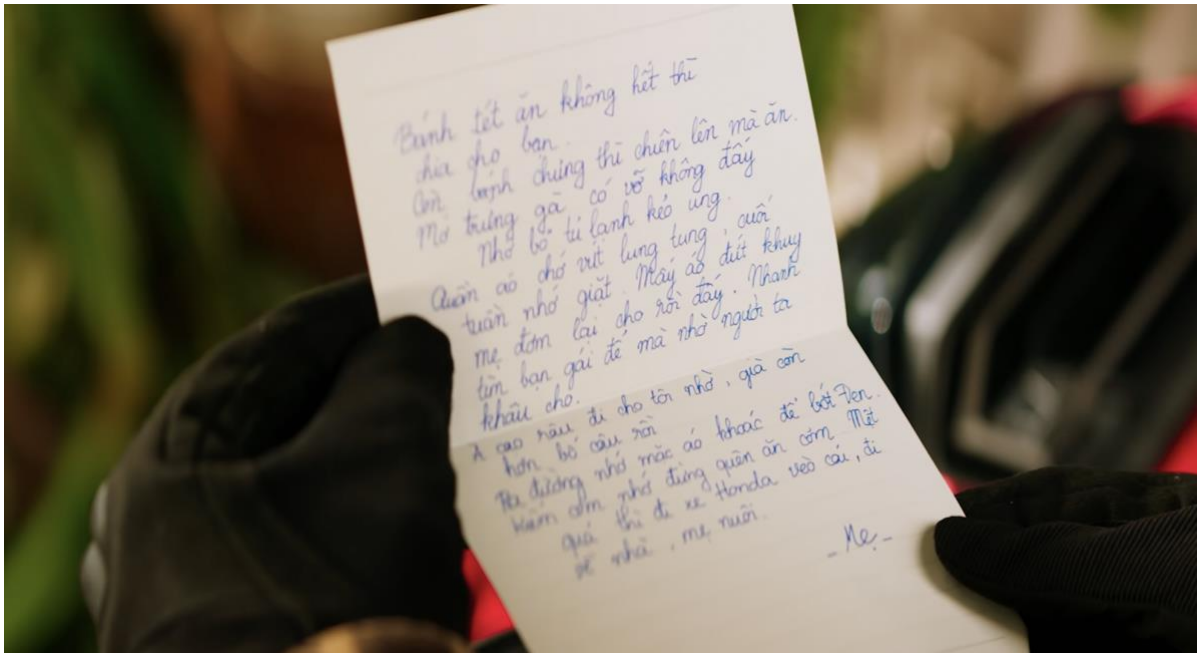 Bánh tét ăn không hết thì
chia cho bạn.
Còn bánh chưng thì chiên lên mà ăn.
Mớ trứng gà có vỡ không đấy
Nhớ bỏ tủ lạnh kẻo ung.
Quần áo chớ vứt lung tung, cuối
tuần nhớ giặt. Mấy áo đứt khuy
mẹ đơm lại cho rồi đấy. Nhanh
tìm bạn gái để mà nhờ người ta
khâu cho.
À cạo râu đi cho tôi nhờ, già còn
hơn bố cậu rồi
Ra đường nhớ mặc áo khoác để bớt Đen.
Kiếm cơm nhớ đừng quên ăn cơm. Mệt
quá thì đi xe Honda vèo cái, đi
về nhà, mẹ nuôi.
- Mẹ -